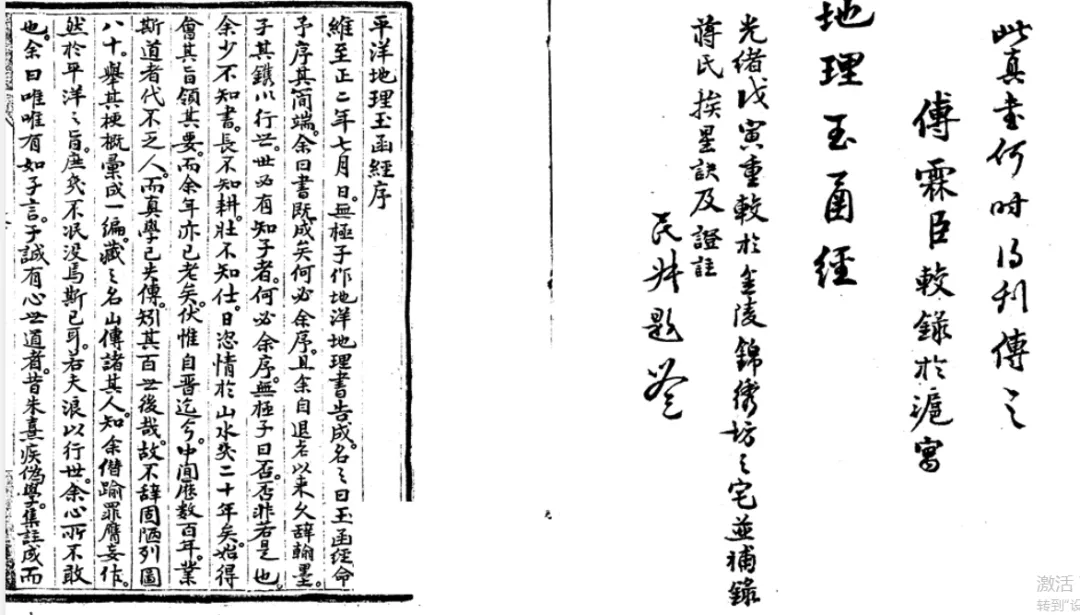 此真書何時得刊傳之
傅霖臣較錄於滬寓
地理玉函經
光緒戊寅重較於金陵錦衛坊之宅並補錄
蔣氏挨星訣及證註
民
平洋地理玉函經序
維至正二年七月日無極子作地洋地理書告成名之曰玉函經命
予序其簡端余曰書既成矣何必余序且余自退名以來久辭翰墨
子其鐫以行世世必有知子者何必余序無極子曰否否非若是也
余少不知書長不知耕壯不知仕日恣情於山水炎二十年矣始得
會其旨領其要而余年亦已老矣伏惟自晋迄今中間歷數百年業
斯道者代不乏人而真學已失傳矧其百世後哉故不辞固陋列圖
八十舉其梗概彙成一編藏之名山傳諸其人知余僭踰罪膺妄作
然於平洋之旨庶幾不泯没焉斯已可若夫浪以行世余心所不敢
也余曰唯唯有如子言子誠有心世道者昔朱熹疾偽學集註成而
激活
转到"设